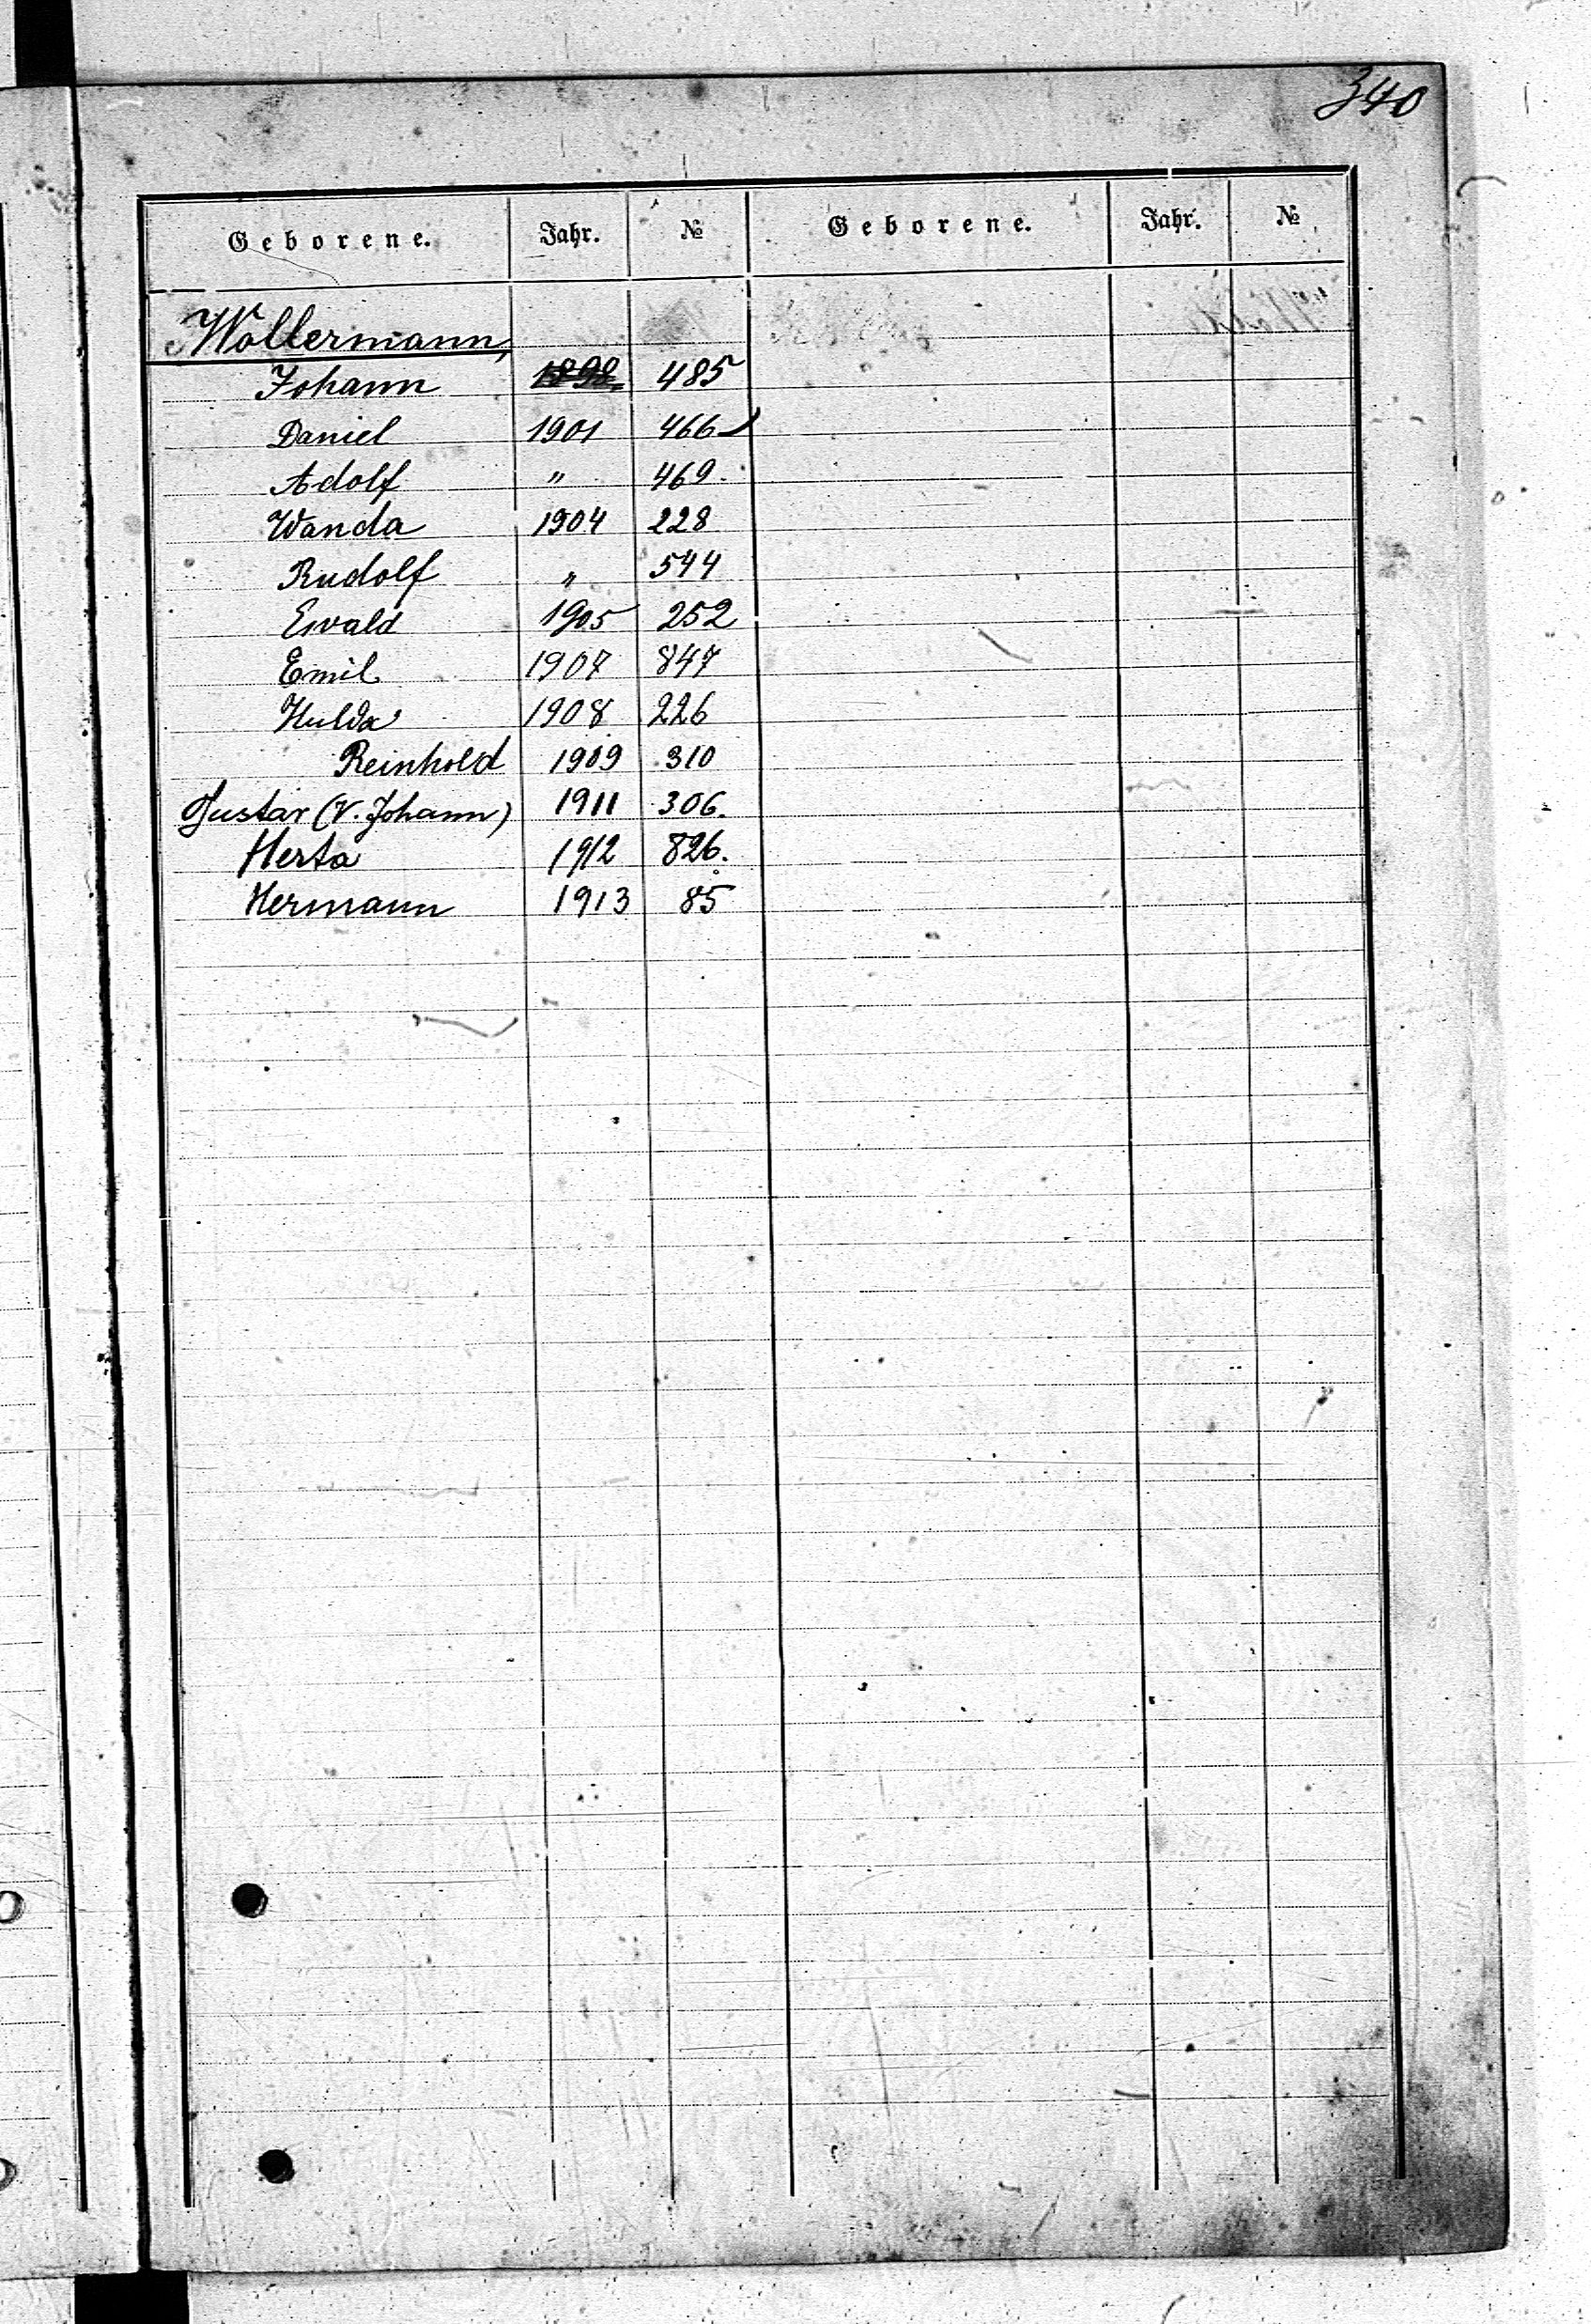 340
Geborene. Jahr. № Geborene. Jahr. №
Wollermann,
Johann 1898 485
Daniel 1901 466
Adolf " 469.
Wanda 1904 228
Rudolf " 544
Ewald 1905 252
Emil 1907 847
Hulda 1908 226
Reinhold 1909 310
Gustav (V. Johann) 1911 306.
Herta 1912 826.
Hermann 1913 85